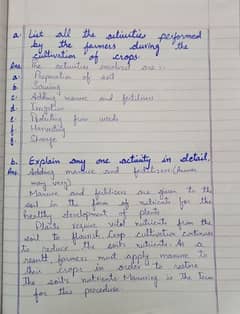 a. List all the activities performed
by the farmers during the
cultivation of crops.
Ans. The activities involved are :-
a. Preparation of soil
b. Sowing
c. Adding manure and fertilisers
d. Irrigation
e. Protecting from weeds
f. Harvesting
g. Storage
b. Explain any one activity in detail.
Ans. Adding manure and fertilisers: (Answer
may vary)
Manure and fertilisers are given to the
soil in the form of nutrients for the
healthy development of plants.
Plants require vital nutrients from the
soil to flourish. Crop cultivation continues
to reduce the soil's nutrients. As a
result farmers must apply manure to
their crops in order to restore
the soil's nutrients. Manuring is the term
for this procedure.